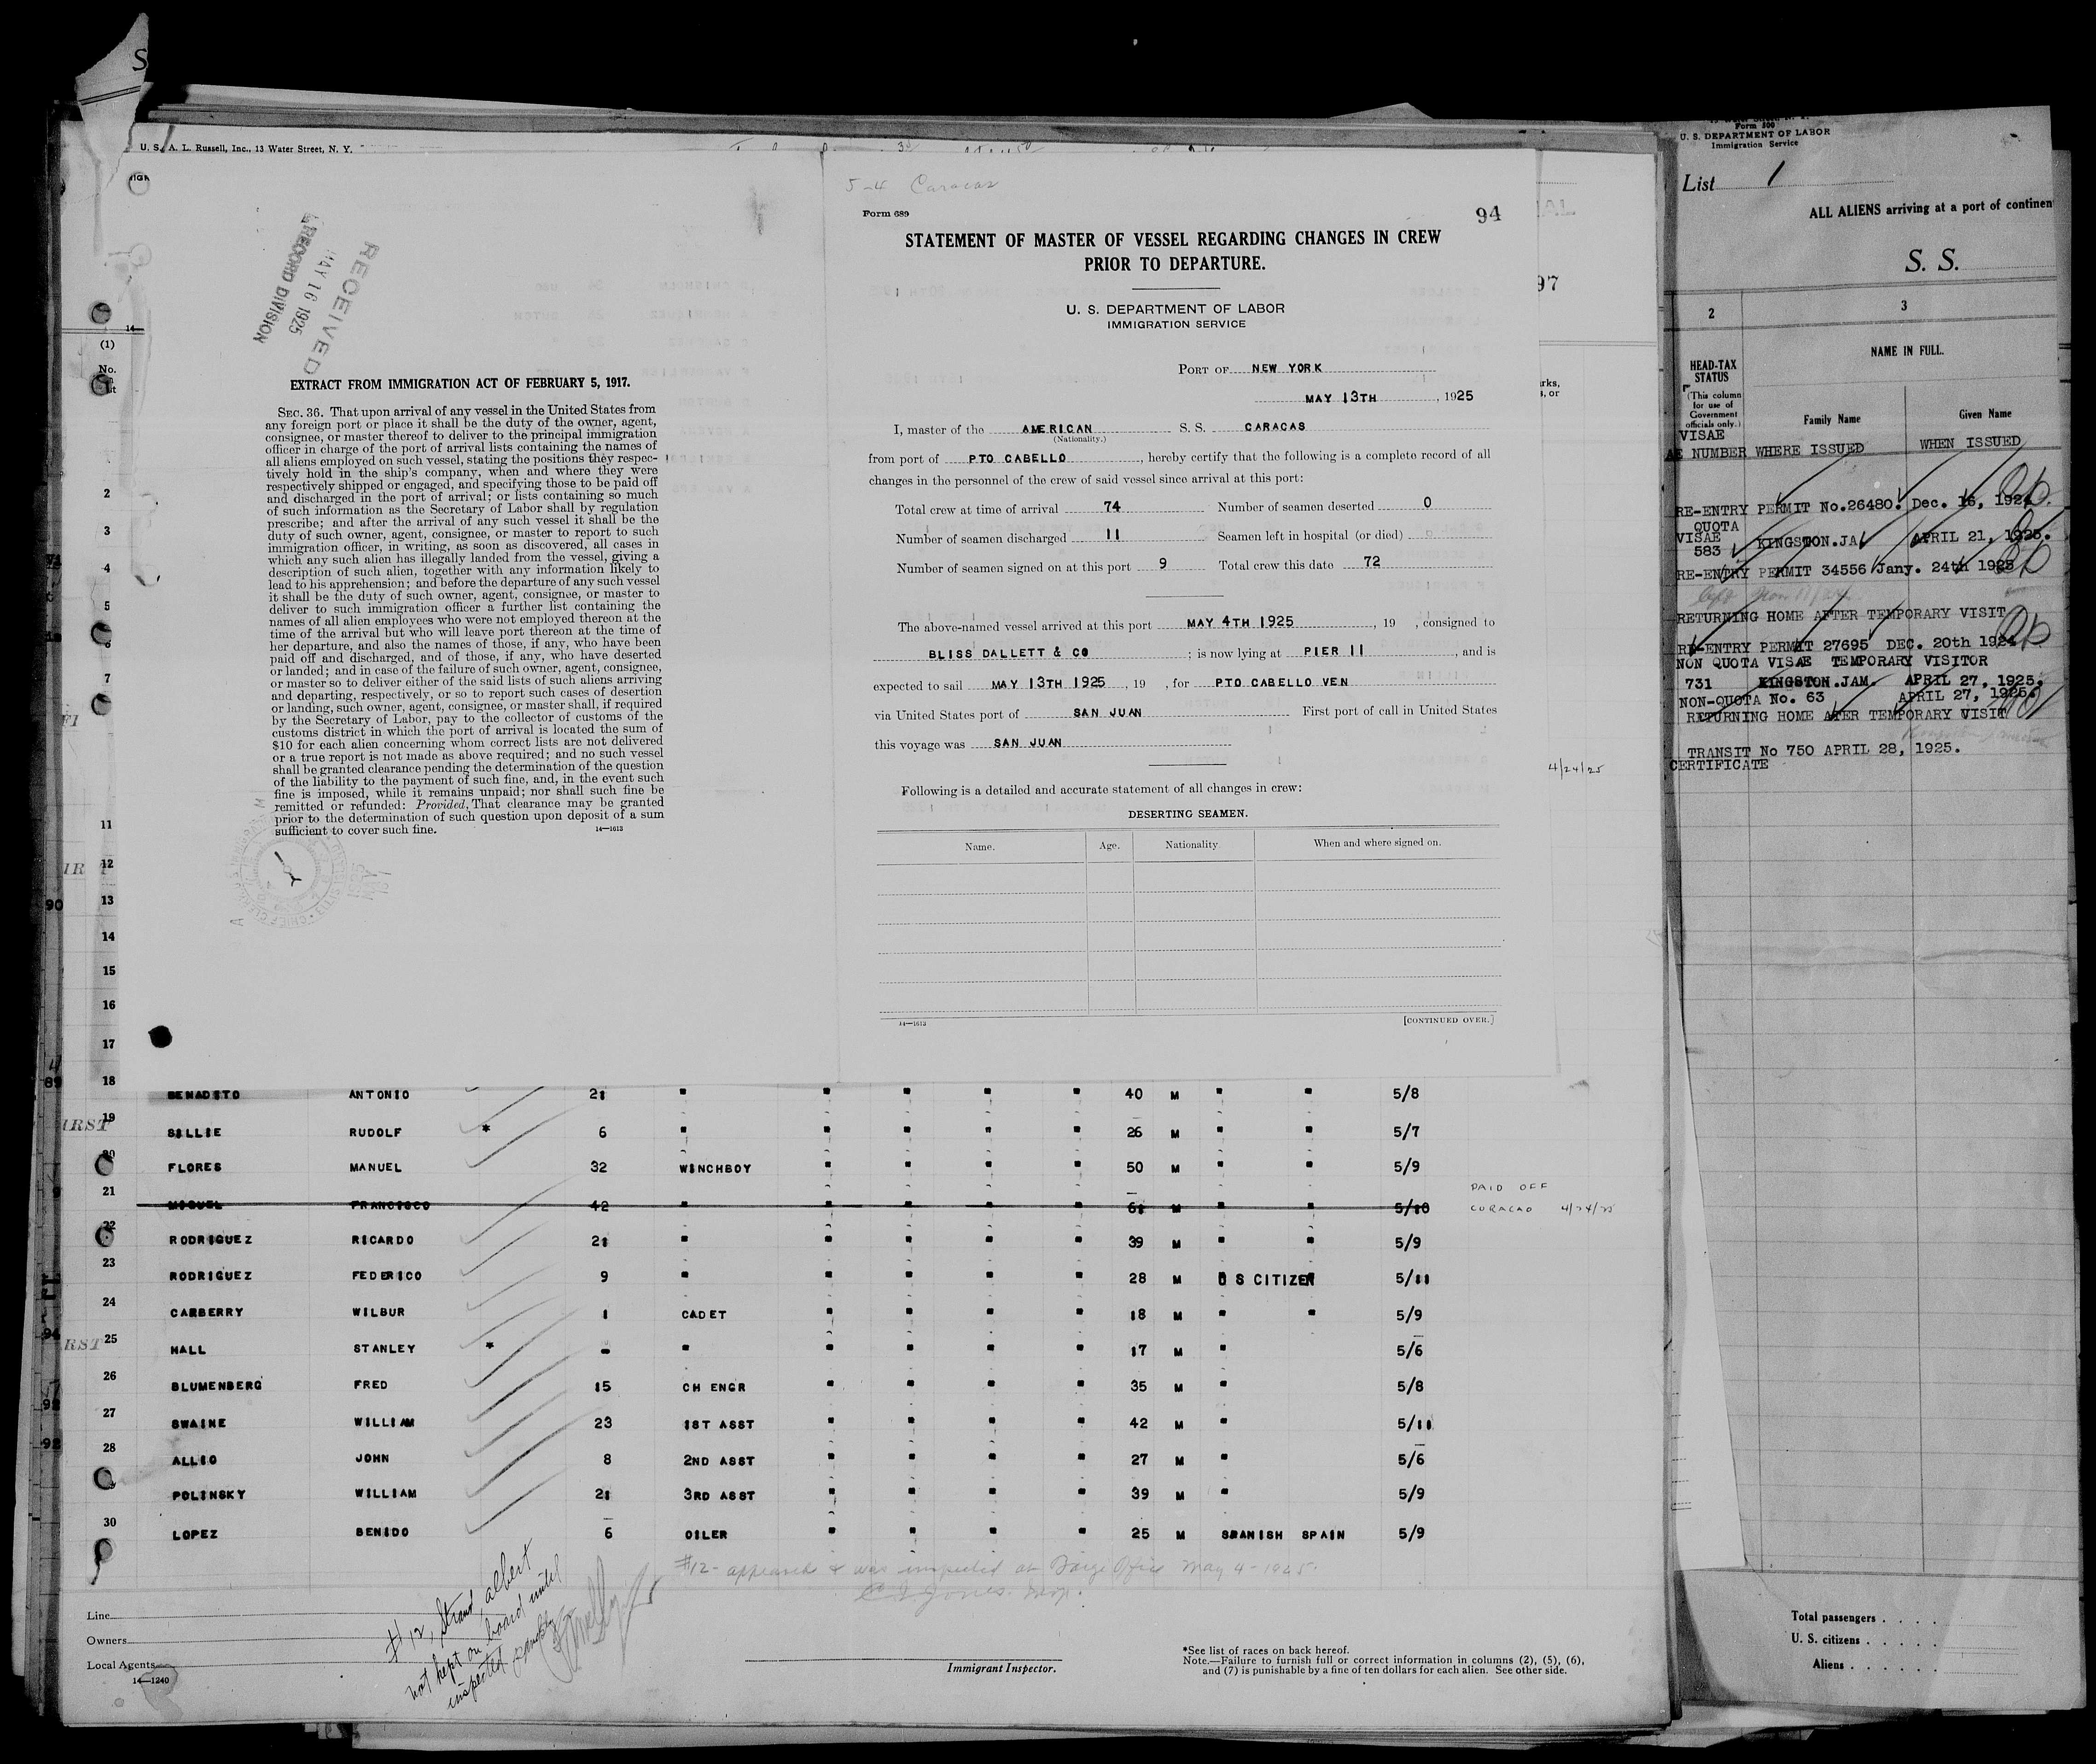 S
U. S. A. L. Russell, Inc., 13 Water Street, N. Y.
RECEIVED
MAY 16 1925
RECORD DIVISION
EXTRACT FROM IMMIGRATION ACT OF FEBRUARY 5, 1917.
SEC. 36. That upon arrival of any vessel in the United States from
any foreign port or place it shall be the duty of the owner, agent,
consignee, or master thereof to deliver to the principal immigration
officer in charge of the port of arrival lists containing the names of
all aliens employed on such vessel, stating the positions they respec-
tively hold in the ship's company, when and where they were
respectively shipped or engaged, and specifying those to be paid off
and discharged in the port of arrival; or lists containing so much
of such information as the Secretary of Labor shall by regulation
prescribe; and after the arrival of any such vessel it shall be the
duty of such owner, agent, consignee, or master to report to such
immigration officer, in writing, as soon as discovered, all cases in
which any such alien has illegally landed from the vessel, giving a
description of such alien, together with any information likely to
lead to his apprehension; and before the departure of any such vessel
it shall be the duty of such owner, agent, consignee, or master to
deliver to such immigration officer a further list containing the
names of all alien employees who were not employed thereon at the
time of the arrival but who will leave port thereon at the time of
her departure, and also the names of those, if any, who have been
paid off and discharged, and of those, if any, who have deserted
or landed; and in case of the failure of such owner, agent, consignee,
or master so to deliver either of the said lists of such aliens arriving
and departing, respectively, or so to report such cases of desertion
or landing, such owner, agent, consignee, or master shall, if required
by the Secretary of Labor, pay to the collector of customs of the
customs district in which the port of arrival is located the sum of
$10 for each alien concerning whom correct lists are not delivered
or a true report is not made as above required; and no such vessel
shall be granted clearance pending the determination of the question
of the liability to the payment of such fine, and, in the event such
fine is imposed, while it remains unpaid; nor shall such fine be
remitted or refunded: Provided, That clearance may be granted
prior to the determination of such question upon deposit of a sum
sufficient to cover such fine.
14—1613
5-4 Caracas
Form 689
94
STATEMENT OF MASTER OF VESSEL REGARDING CHANGES IN CREW
PRIOR TO DEPARTURE.
U. S. DEPARTMENT OF LABOR
IMMIGRATION SERVICE
PORT OF NEW YORK
MAY 13TH, 1925
I, master of the AMERICAN S. S. CARACAS
(Nationality.)
from port of PTO CABELLO, hereby certify that the following is a complete record of all
changes in the personnel of the crew of said vessel since arrival at this port:
Total crew at time of arrival 74 Number of seamen deserted 0
Number of seamen discharged 11 Seamen left in hospital (or died)
Number of seamen signed on at this port 9 Total crew this date 72
The above-named vessel arrived at this port MAY 4TH 1925, 19 , consigned to
BLISS DALLETT & CO ; is now lying at PIER 11, and is
expected to sail MAY 13TH 1925, 19 , for PTO CABELLO VEN
via United States port of SAN JUAN First port of call in United States
this voyage was SAN JUAN
Following is a detailed and accurate statement of all changes in crew:
DESERTING SEAMEN.
Name. Age. Nationality. When and where signed on.
14—1613 [CONTINUED OVER.]
97
4/24/25
14—
(1)
No.
2
3
4
5
6
7
11
12
13
14
15
16
17
18 BENADITO ANTONIO 21 " " " " " 40 M " " 5/8
19 SILLIE RUDOLF * 6 " " " " " 26 M " " 5/7
20 FLORES MANUEL 32 WINCHBOY " " " " 50 M " " 5/9
21 MIGUEL FRANCISCO 42 " " " " " 61 M " " 5/10 PAID OFF
CURACAO 4/24/25
22 RODRIGUEZ RICARDO 21 " " " " " 39 M " " 5/9
23 RODRIGUEZ FEDERICO 9 " " " " " 28 M U S CITIZEN 5/11
24 CARBERRY WILBUR 1 CADET " " " " 18 M " " 5/9
25 HALL STANLEY * - " " " " " 17 M " 5/6
26 BLUMENBERG FRED 15 CH ENGR " " " " 35 M " 5/8
27 SWAINE WILLIAM 23 1ST ASST " " " " 42 M " 5/11
28 ALLIO JOHN 8 2ND ASST " " " " 27 M " 5/6
POLINSKY WILLIAM 21 3RD ASST " " " " 39 M " 5/9
30 LOPEZ BENIDO 6 OILER " " " " 25 M SPANISH SPAIN 5/9
#12- appeared & was inspected at Barge Office May 4-1925.
Jones. Insp.
#12, Strand, Albert
not kept on board until
inspected
Line
Owners
Local Agents
14—1240
Immigrant Inspector.
*See list of races on back hereof.
Note.—Failure to furnish full or correct information in columns (2), (5), (6),
and (7) is punishable by a fine of ten dollars for each alien. See other side.
Form 500
U. S. DEPARTMENT OF LABOR
Immigration Service
List 1
ALL ALIENS arriving at a port of continen
S. S.
2 3
HEAD-TAX
STATUS
(This column
for use of
Government
officials only.)
NAME IN FULL.
Family Name Given Name
VISAE
NUMBER WHERE ISSUED WHEN ISSUED
RE-ENTRY PERMIT No.26480. Dec. 16, 1924.
QUOTA
VISAE
583 KINGSTON.JA APRIL 21, 1925.
RE-ENTRY PERMIT 34556 Jany. 24th 1925
RETURNING HOME AFTER TEMPORARY VISIT
RE-ENTRY PERMIT 27695 DEC. 20th 1924
NON QUOTA VISAE TEMPORARY VISITOR
731 KINGSTON.JAM. APRIL 27, 1925.
NON-QUOTA No. 63 APRIL 27, 1925.
RETURNING HOME AFTER TEMPORARY VISIT
TRANSIT No 750 APRIL 28, 1925.
CERTIFICATE
Total passengers
U. S. citizens
Aliens